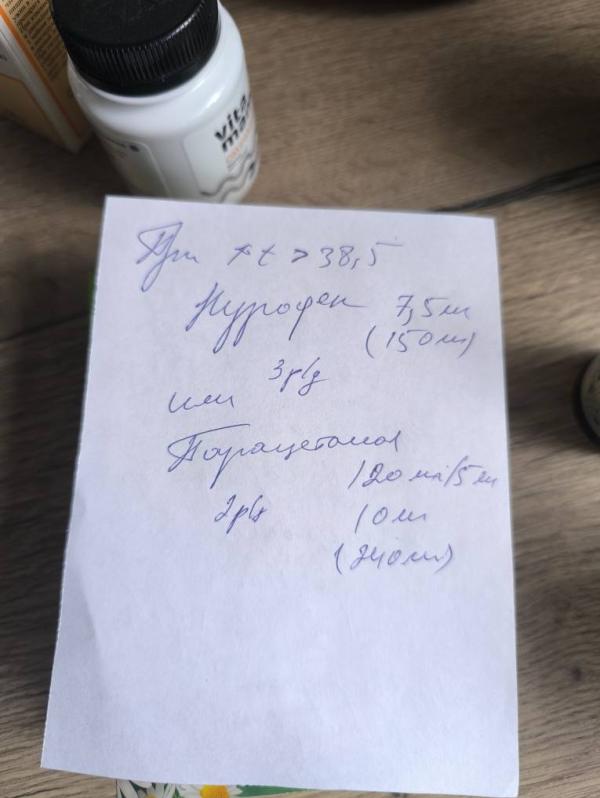 vita
При t > 38,5
Нурофен 7,5 мл
(150 мг)
3 р/д
или
Парацетамол
120 мг/5 мл
2 р/д 10 мл
(240 мг)